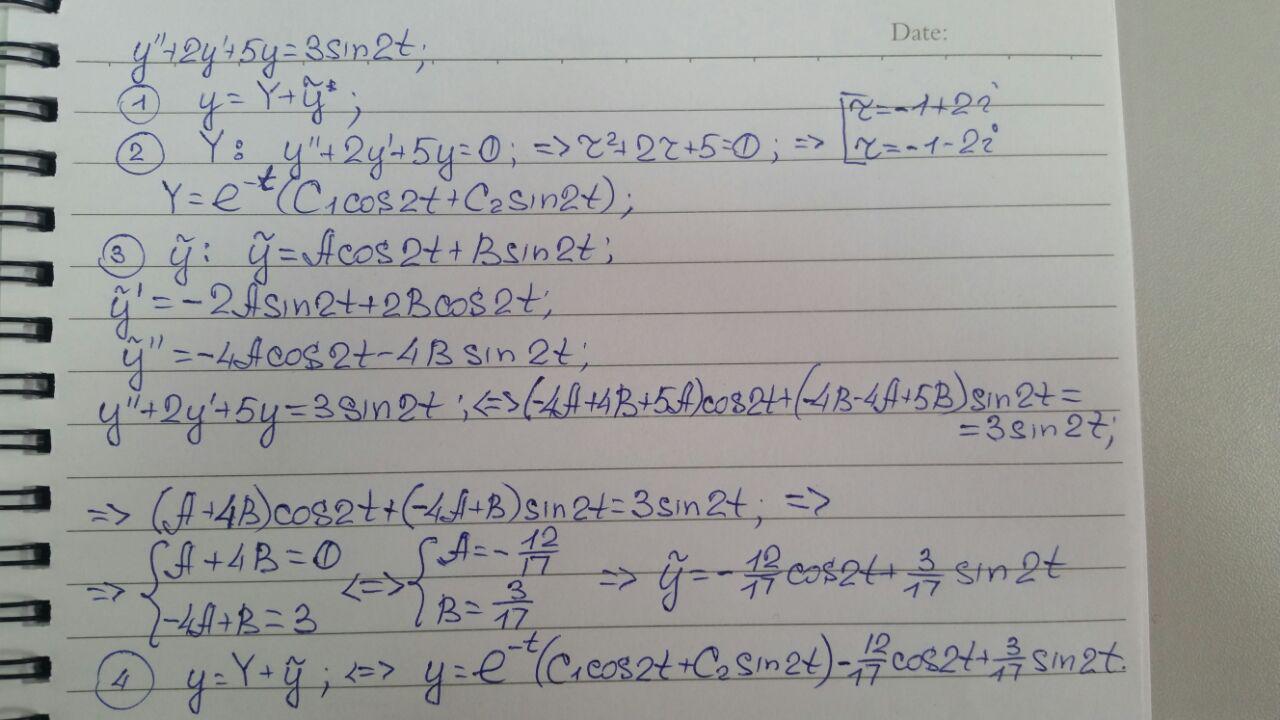 Date:
y''+2y'+5y=3sin2t;
① y=Y+ỹ*;
② Y: y''+2y'+5y=0; => r²+2r+5=0; => [r=-1+2i
[r=-1-2i
Y=e^{-t}(C₁cos2t+C₂sin2t);
③ ỹ: ỹ=Acos2t+Bsin2t;
ỹ'=-2Asin2t+2Bcos2t;
ỹ''=-4Acos2t-4Bsin2t;
y''+2y'+5y=3sin2t; <=>(-4A+4B+5A)cos2t+(-4B-4A+5B)sin2t=
=3sin2t;
=> (A+4B)cos2t+(-4A+B)sin2t=3sin2t; =>
=> {A+4B=0 <=> {A=-12/17 => ỹ=-12/17 cos2t+3/17 sin2t
{-4A+B=3 {B=3/17
④ y=Y+ỹ; <=> y=e^{-t}(C₁cos2t+C₂sin2t)-12/17 cos2t+3/17 sin2t.